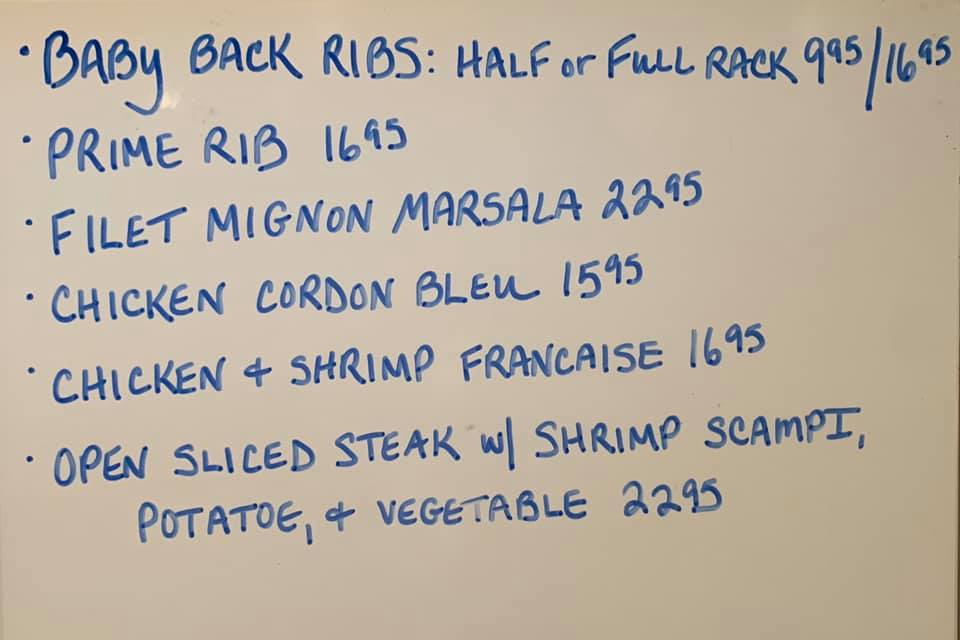 · BABY BACK RIBS: HALF or FULL RACK 9 95/16 95
· PRIME RIB 16 95
· FILET MIGNON MARSALA 22 95
· CHICKEN CORDON BLEU 15 95
· CHICKEN + SHRIMP FRANCAISE 16 95
· OPEN SLICED STEAK w/ SHRIMP SCAMPI,
POTATOE, + VEGETABLE 22 95